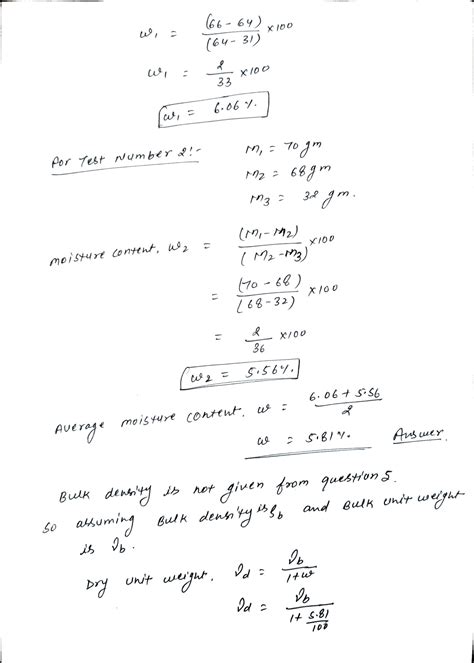 w₁ = (66-64)/(64-31) ×100
w₁ = 2/33 ×100
w₁ = 6.06%.
For Test Number 2:- M₁ = 70 gm
M₂ = 68 gm
M₃ = 32 gm.
Moisture content, w₂ = (M₁-M₂)/(M₂-M₃) ×100
= (70-68)/(68-32) ×100
= 2/36 ×100
w₂ = 5.56%.
Average moisture content, w = 6.06+5.56/2
w = 5.81%. Answer
Bulk density is not given from question 5.
So assuming Bulk density is ρb and Bulk unit weight
is γb.
Dry unit weight, γd = γb/1+w
γd = γb/1+5.81/100